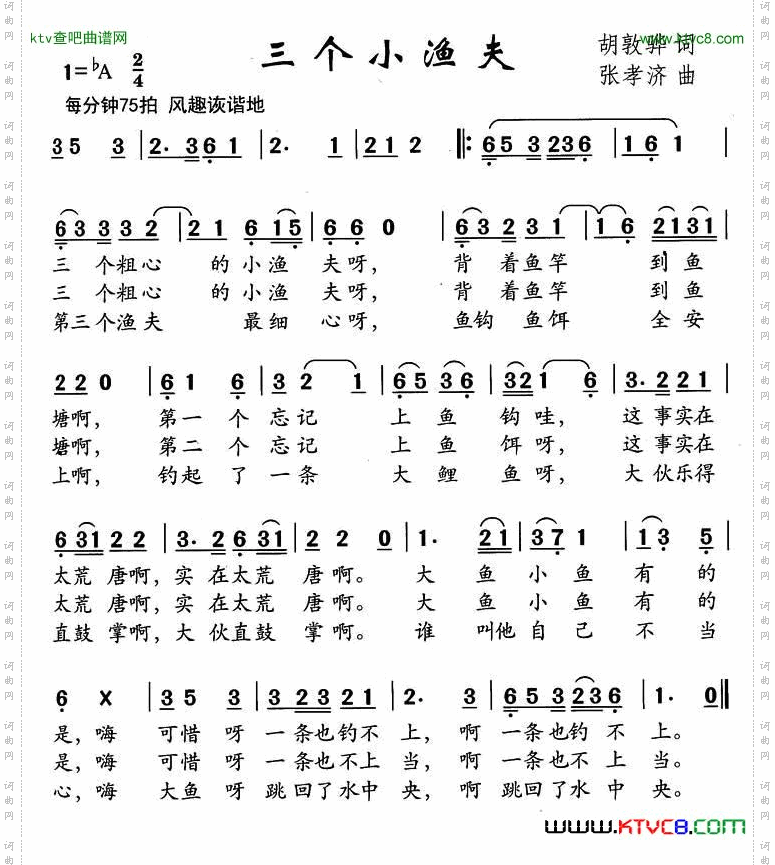 ktv查吧曲谱网
www.ktvc8.com
三个小渔夫
胡敦骅 词
1=♭A 2/4
张孝济 曲
每分钟75拍 风趣诙谐地
3 5 3 | 2. 3 6 1 | 2. 1 | 2 1 2 |: 6 5 3 2 3 6 | 1 6 1 |
6 3 3 3 2 | 2 1 6 1 5 | 6 6 0 | 6 3 2 3 1 | 1 6 2 1 3 1 |
三 个粗心 的 小渔 夫呀, 背 着鱼竿 到 鱼
三 个粗心 的 小渔 夫呀, 背 着鱼竿 到 鱼
第三个渔夫 最细 心呀, 鱼钩 鱼饵 全 安
2 2 0 | 6 1 6 | 3 2 1 | 6 5 3 6 | 3 2 1 6 | 3. 2 2 1 |
塘啊, 第一 个 忘记 上 鱼 钩哇, 这 事实在
塘啊, 第二 个 忘记 上 鱼 饵呀, 这 事实在
上啊, 钓起 了 一条 大 鲤 鱼呀, 大 伙乐得
6 3 1 2 2 | 3. 2 6 3 1 | 2 2 0 | 1. 2 1 | 3 7 1 | 1 3 5 |
太荒 唐啊, 实 在太荒 唐啊。 大 鱼 小 鱼 有 的
太荒 唐啊, 实 在太荒 唐啊。 大 鱼 小 鱼 有 的
直鼓 掌啊, 大 伙直鼓 掌啊。 谁 叫他 自 己 不 当
6 X | 3 5 3 | 3 2 3 2 1 | 2. 3 | 6 5 3 2 3 6 | 1. 0 ‖
是, 嗨 可惜 呀 一 条也钓不 上, 啊 一条也钓 不 上。
是, 嗨 可惜 呀 一 条也不上 当, 啊 一条也不 上 当。
心, 嗨 大鱼 呀 跳 回了水中 央, 啊 跳回了水 中 央。
WWW.KTVC8.COM
词曲网